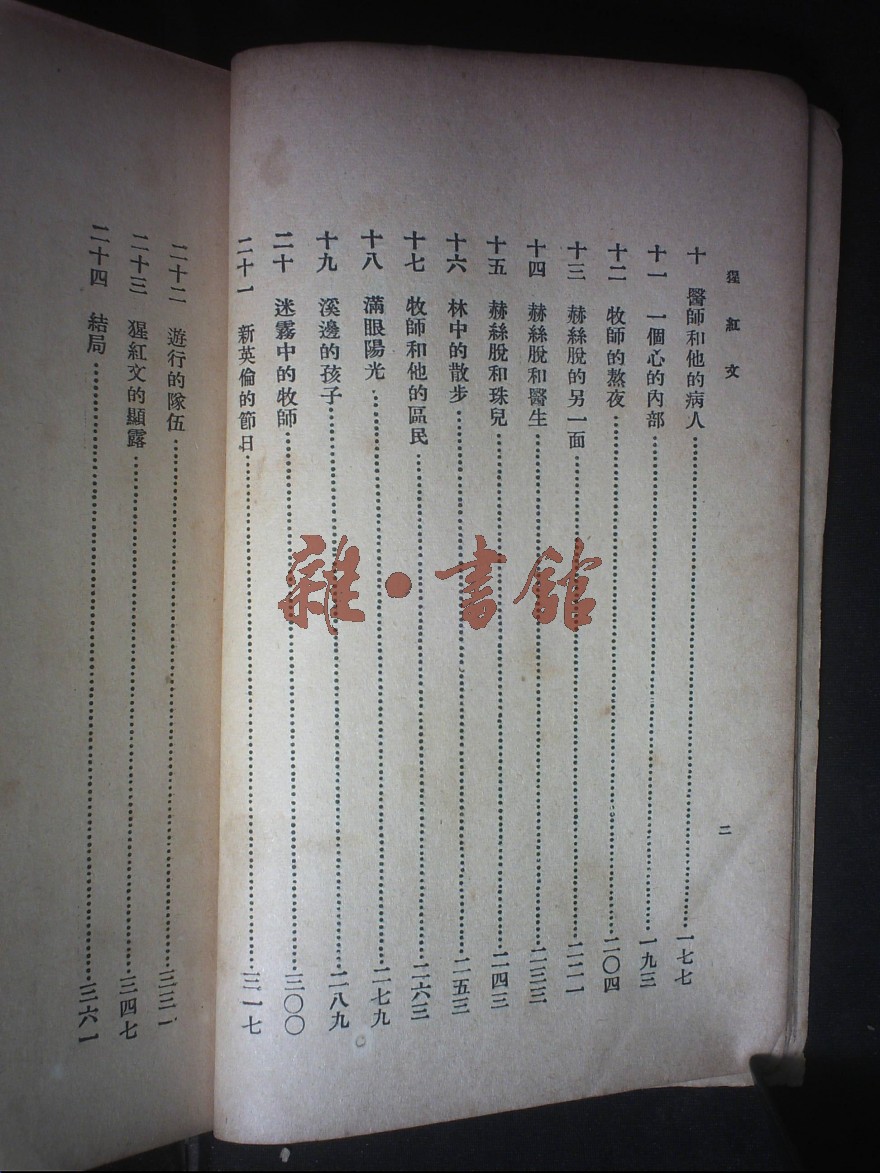 猩紅文
二
十 醫師和他的病人……一七七
十一 一個心的內部……一九三
十二 牧師的熬夜……二〇四
十三 赫絲脫的另一面……二二一
十四 赫絲脫和醫生……二三三
十五 赫絲脫和珠兒……二四三
十六 林中的散步……二五三
十七 牧師和他的區民……二六三
十八 滿眼陽光……二七九
十九 溪邊的孩子……二八九
二十 迷霧中的牧師……三〇〇
二十一 新英倫的節日……三一七
二十二 遊行的隊伍……三三一
二十三 猩紅文的顯露……三四七
二十四 結局……三六一
雜·書館